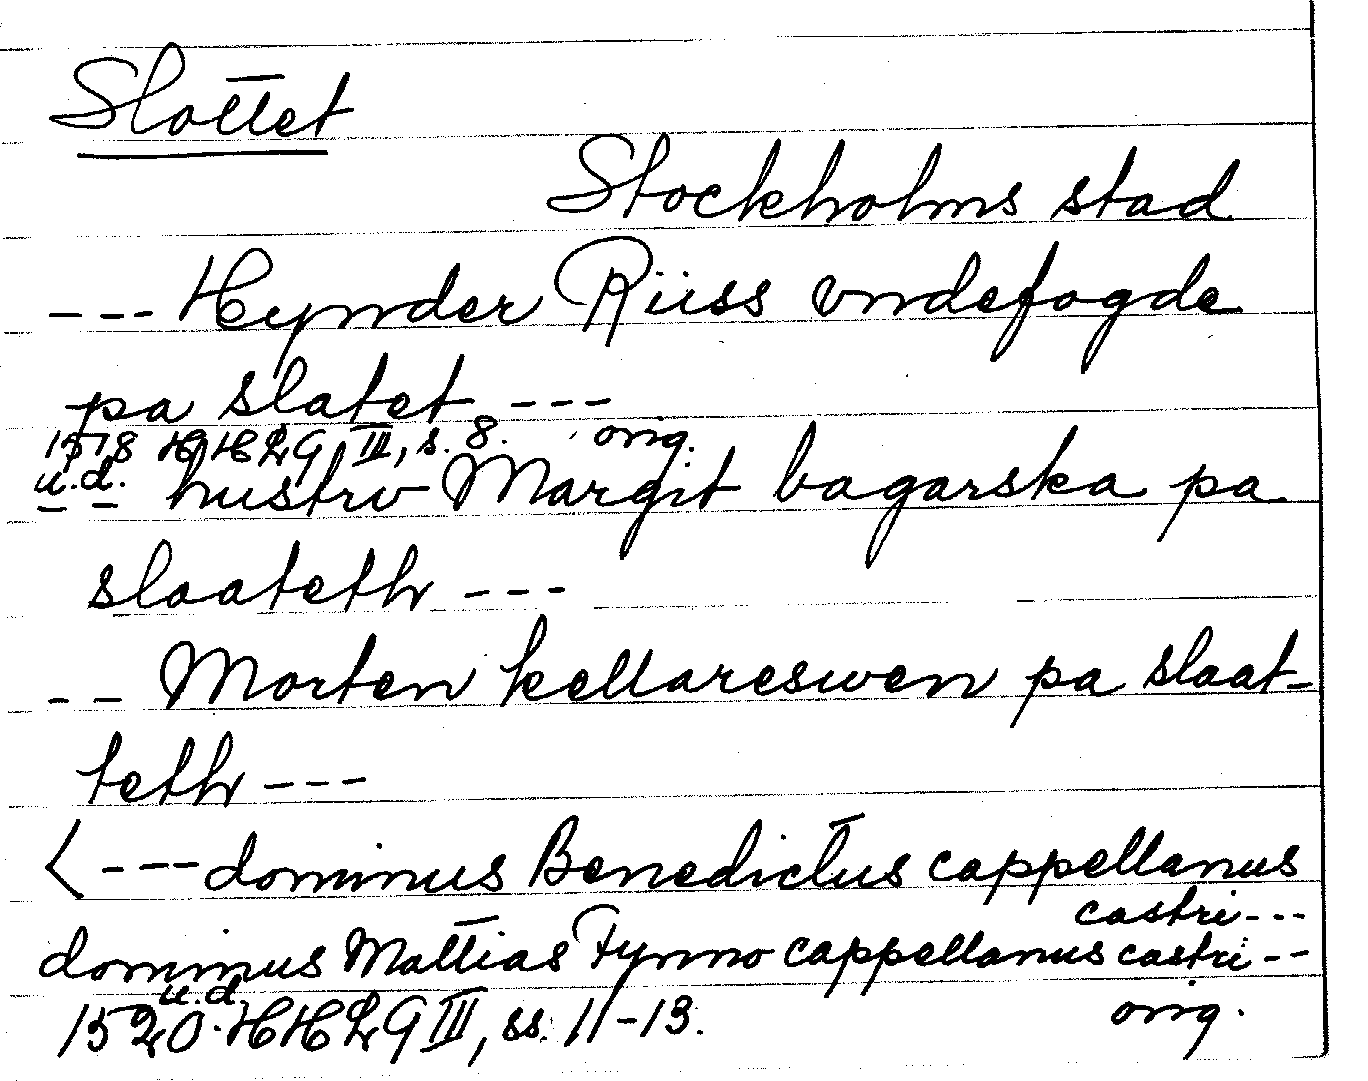 Slottet
Stockholms stad
--- Hynder Rüss vndefogde
pa slatet ---
1518 u.d. HHLG III, s. 8. orig.
-- hustrv Margit bagarska pa
slaateth ---
-- Morten kellareswen pa slaat-
teth ---
< --- dominus Benedictus cappellanus
castri ---
dominus Mattias Fynno cappellanus castri --
1520 u.d. HHLG III, ss. 11-13. orig.